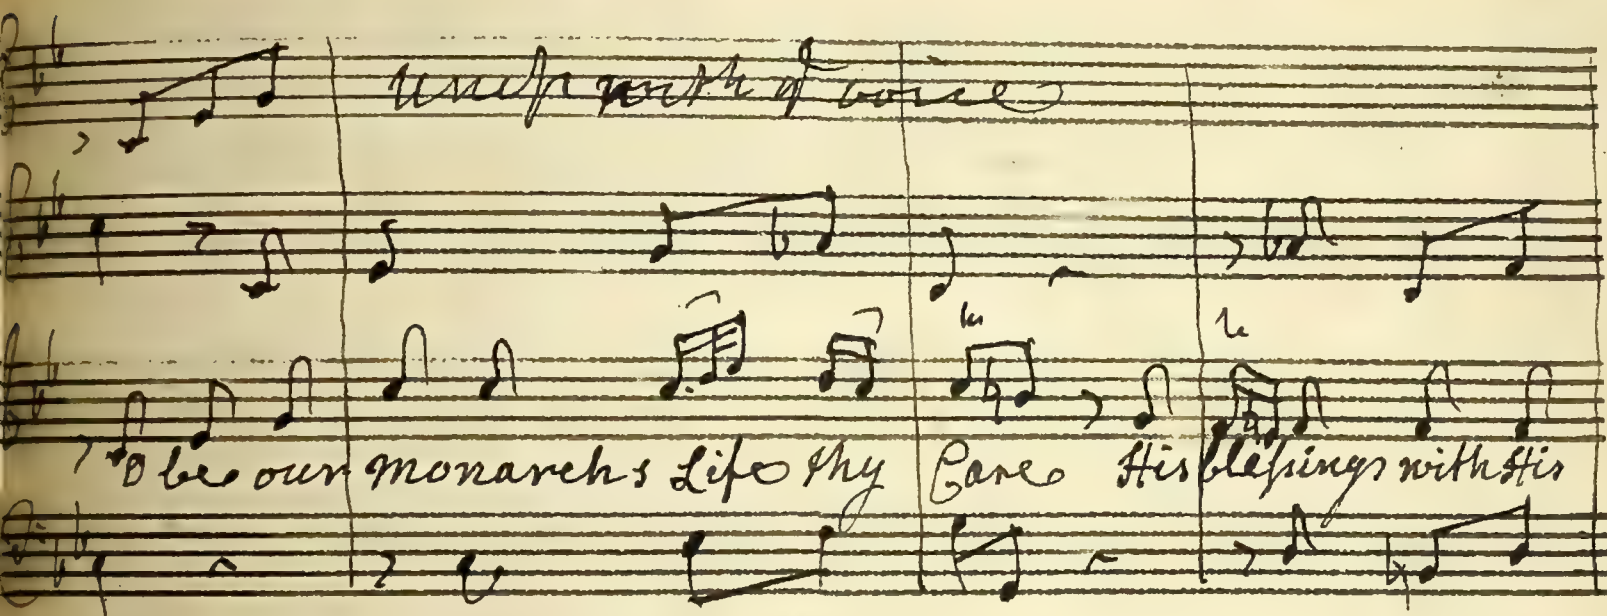 Unis with ye voice
O be our Monarchs Life thy Care His blessings with His